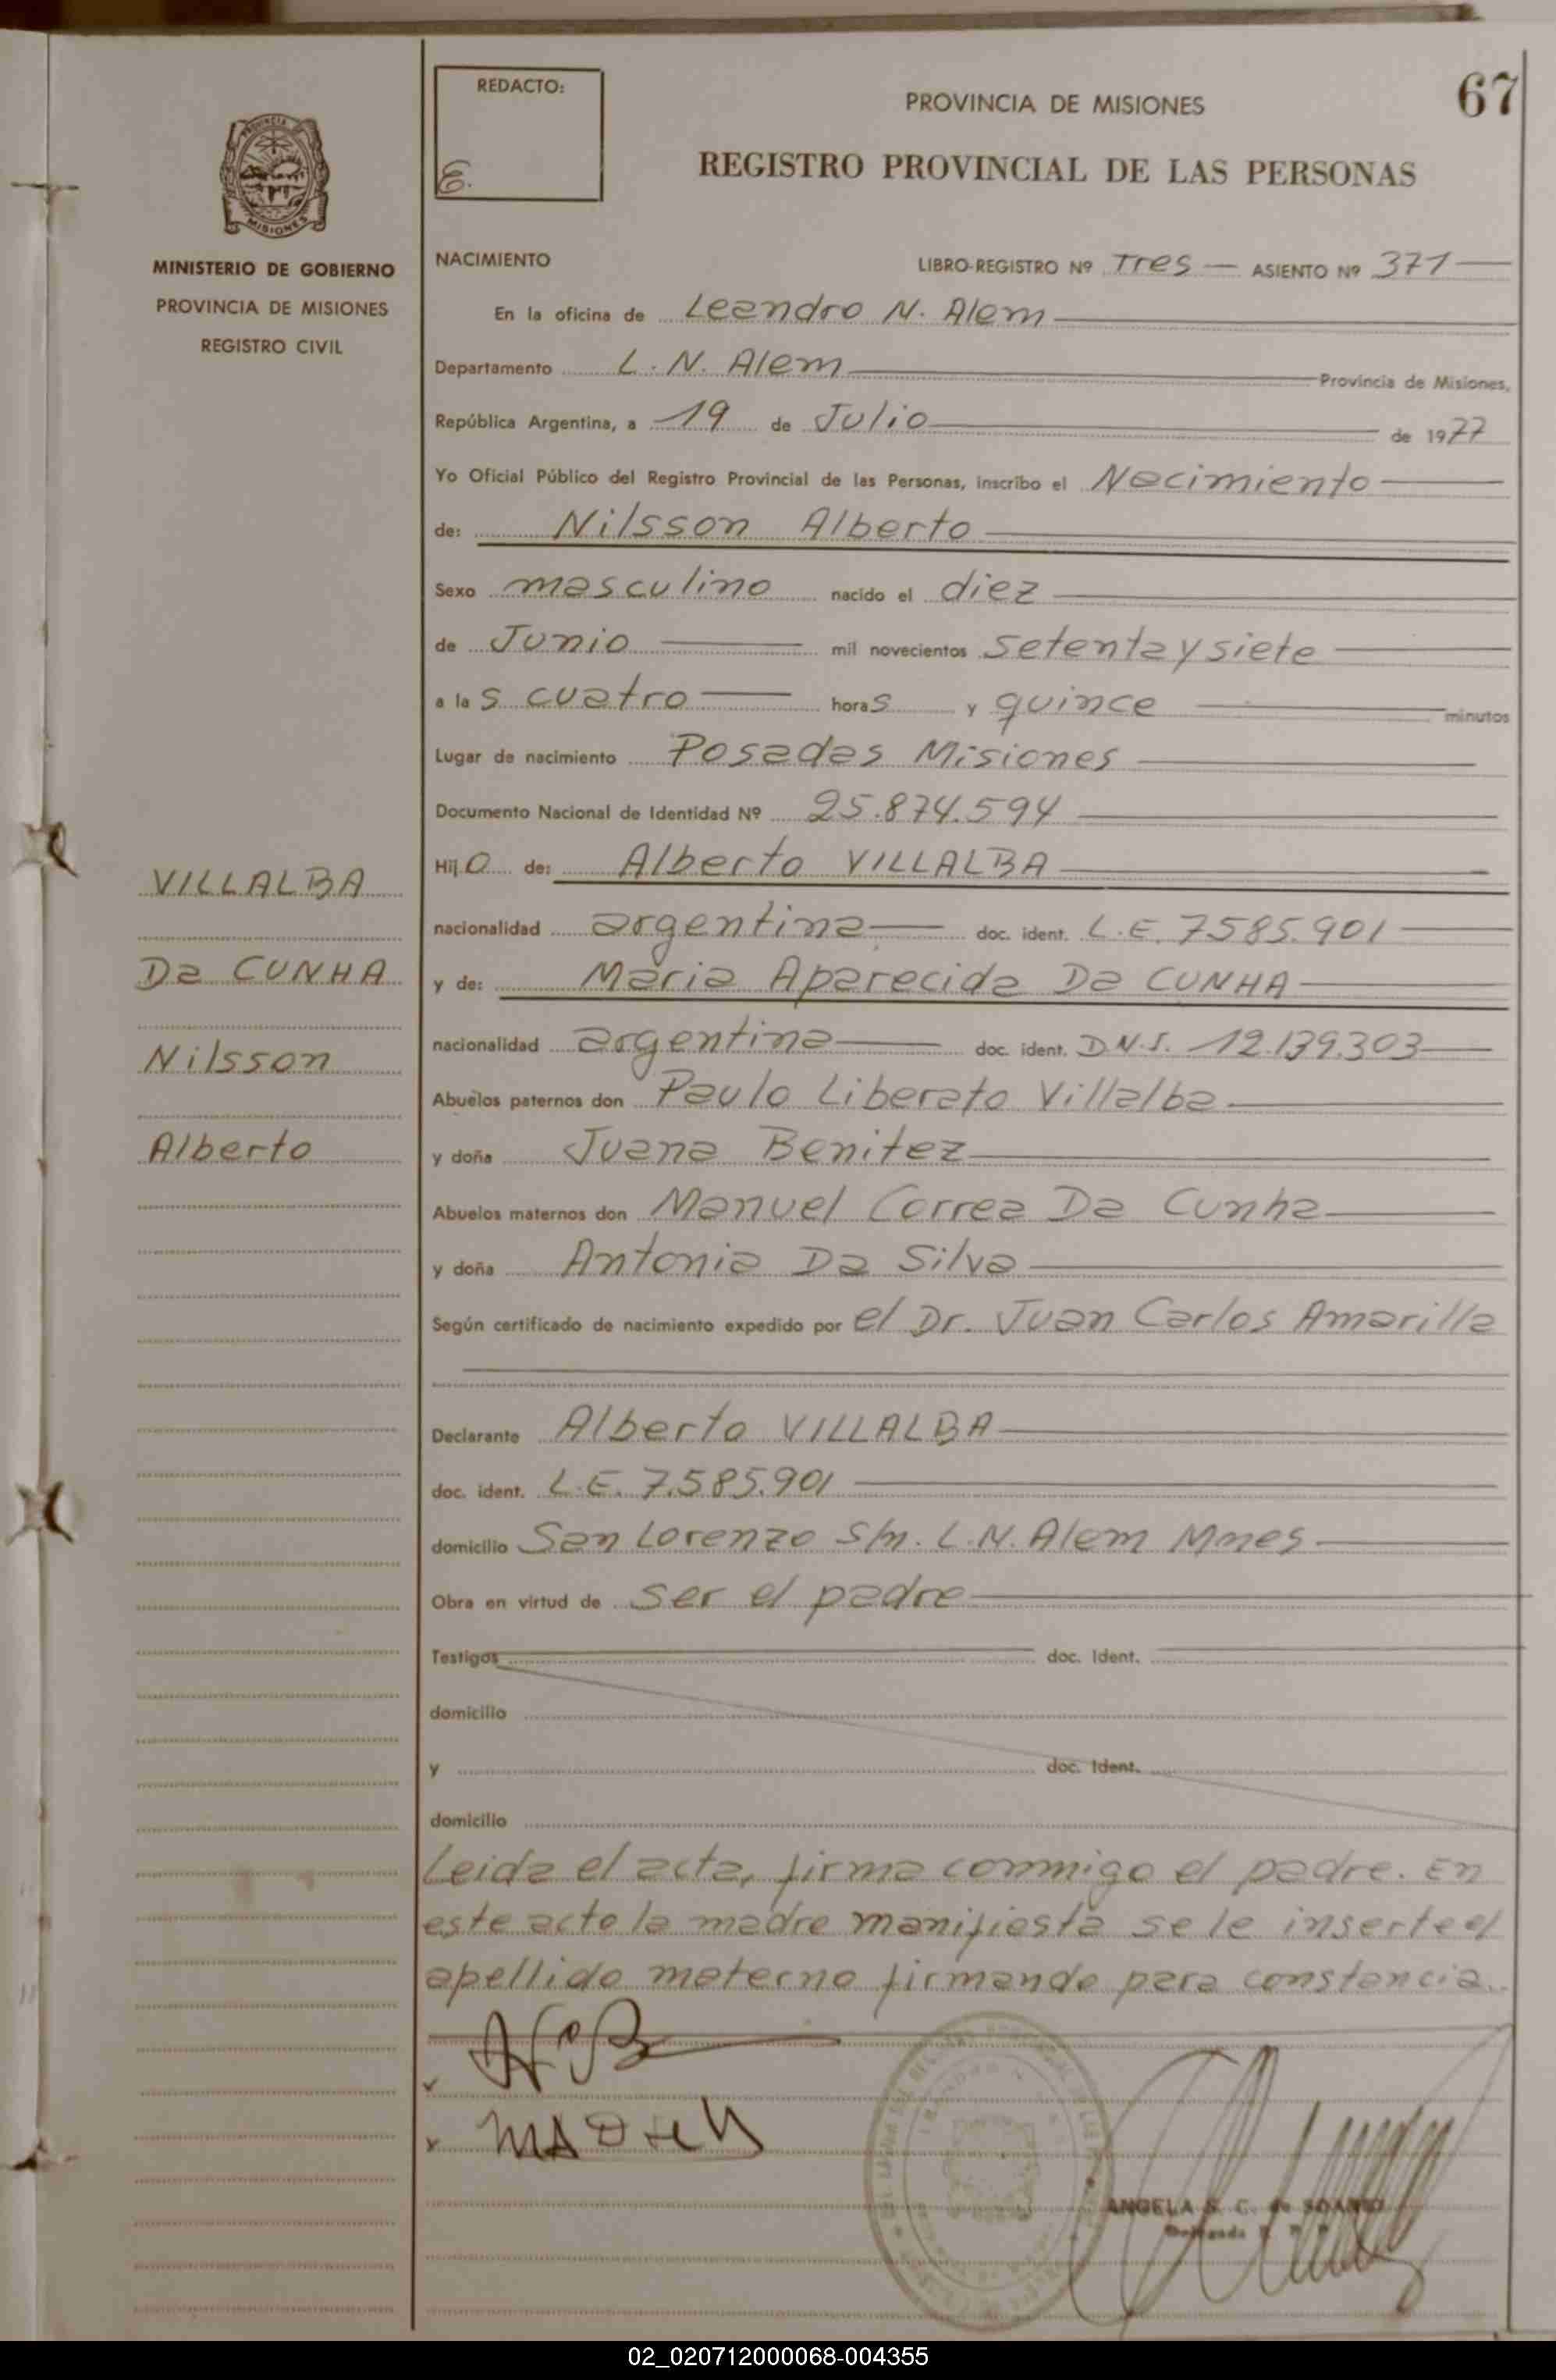 67
REDACTO:
E.
PROVINCIA DE MISIONES
REGISTRO PROVINCIAL DE LAS PERSONAS
PROVINCIA DE
MISIONES
MINISTERIO DE GOBIERNO
PROVINCIA DE MISIONES
REGISTRO CIVIL
NACIMIENTO LIBRO-REGISTRO Nº Tres — ASIENTO Nº 371
En la oficina de Leandro N. Alem
Departamento L. N. Alem Provincia de Misiones,
República Argentina, a 19 de Julio de 1977
Yo Oficial Público del Registro Provincial de las Personas, inscribo el Nacimiento
de: Nilsson Alberto
Sexo masculino nacido el diez
de Junio mil novecientos setenta y siete
a las cuatro horas y quince minutos
Lugar de nacimiento Posadas Misiones
Documento Nacional de Identidad Nº 25.874.594
Hijo de: Alberto VILLALBA
nacionalidad argentina doc. ident. L.E. 7585.901
y de: Maria Aparecida Da CUNHA
nacionalidad argentina doc. ident. D.N.I. 12.139.303
Abuelos paternos don Paulo Liberato Villalba
y doña Juana Benitez
Abuelos maternos don Manuel Correa Da Cunha
y doña Antonia Da Silva
Según certificado de nacimiento expedido por el Dr. Juan Carlos Amarilla
Declarante Alberto VILLALBA
doc. ident. L.E. 7.585.901
domicilio San Lorenzo S/n. L.N. Alem Mnes
Obra en virtud de ser el padre
Testigos doc. Ident.
domicilio
y doc. Ident.
domicilio
Leida el acta, firma conmigo el padre. En
este acto la madre manifiesta se le inserte el
apellido materno firmando para constancia.
VILLALBA
Da CUNHA
Nilsson
Alberto
ANGELA S. C. de
02_020712000068-004355